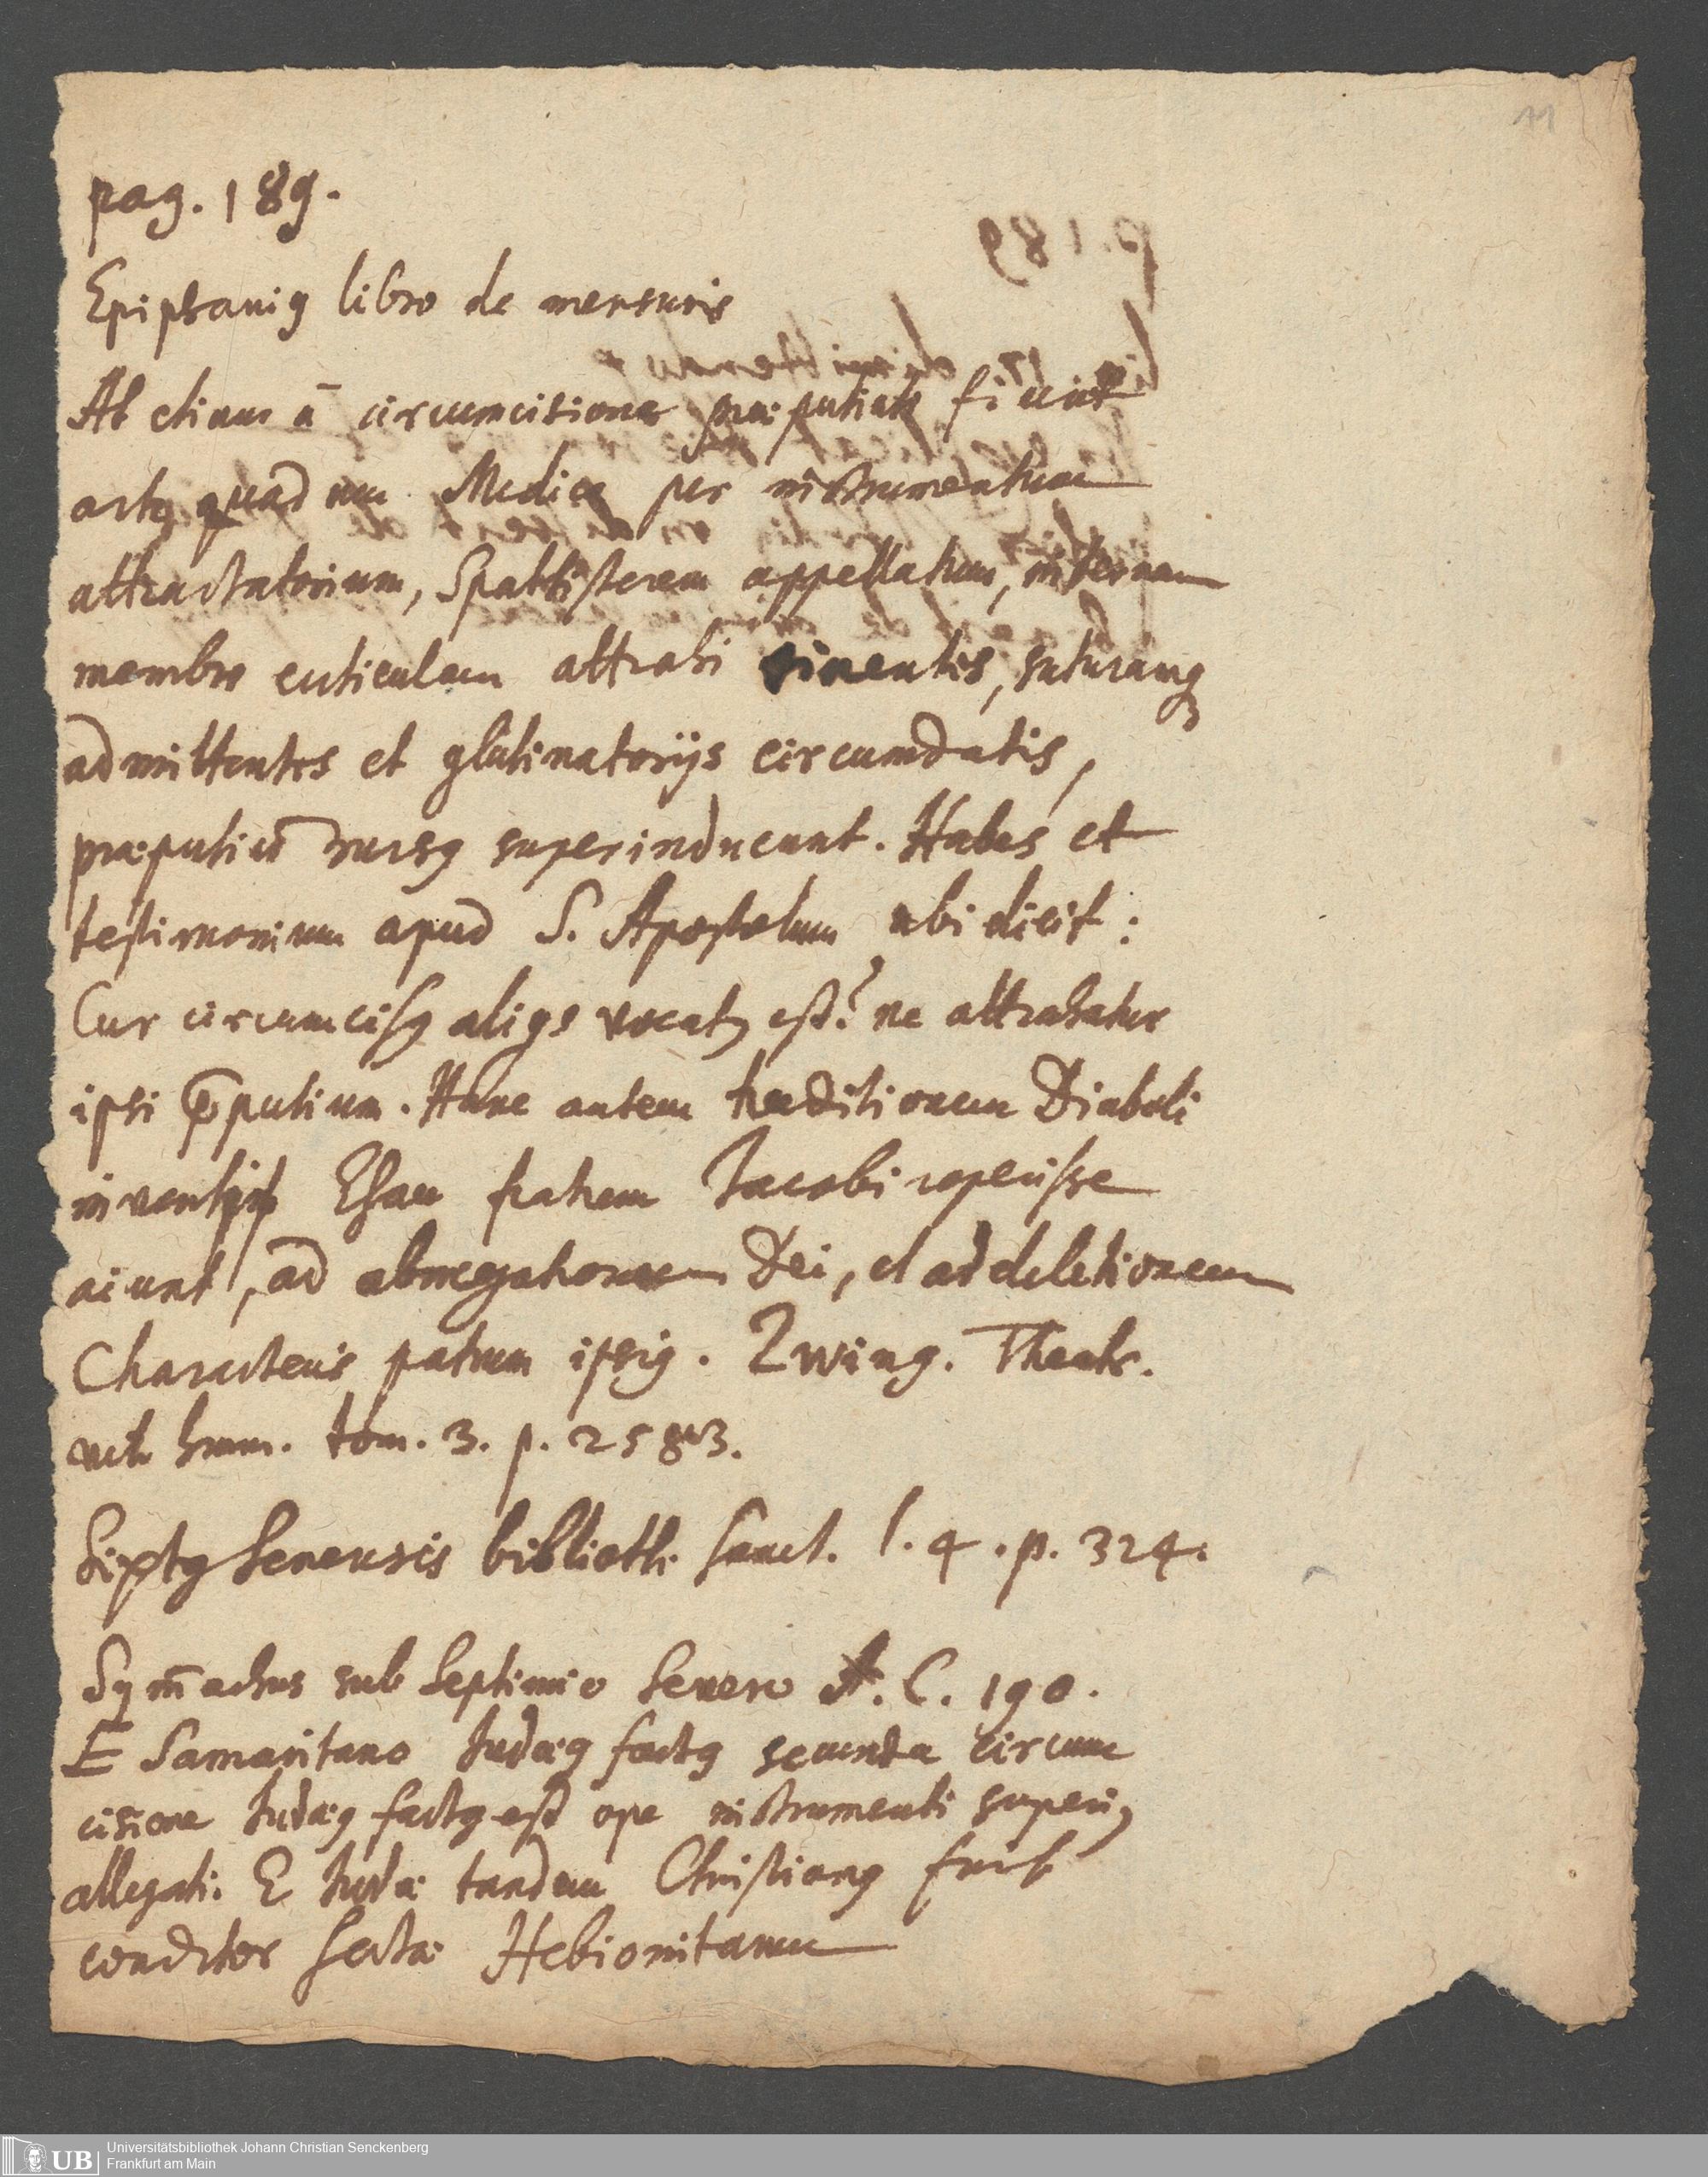 11
pag. 189.
Epiphaniꝰ libro de mensuris
At etiam à circumcisione præputiati fiunt
artꝫ quadam Medicæ per instrumentum
attractatorium, Spathisterem appellatum, internam
membro cuticulam attrahi sinentes, suturamqꝫ
admittentes et glutinatorijs circumdatis,
præputiũ rursꝰ superinducunt. Habes et
testimonium apud S. Apostolum ubi dicit:
Cur circumcisꝰ aliqs vocatꝰ est? ne attrahatur
ipsi p̄putium. Hanc autem traditionem Diaboli
Esau fratrem Jacobi reperisse
aiunt, ad abnegationem Dei, et ad deletionem
Characteris patrum ipsiꝰ. Zwing. Theatr.
vitæ hum. tom. 3. p. 2583.
Sixtꝰ Senensis biblioth. sanct. l. 4. p. 324.
Sym̄achus sub Septimio Severo A. C. 190.
E Samaritano Iudæꝰ factꝰ secunda circum
cisione Iudæꝰ factꝰ est ope instrumenti superiꝰ
allegati. E Iudæ tandem Christianꝰ fuit
conditor sectæ Hebionitarum
p. 189
Universitätsbibliothek Johann Christian Senckenberg
Frankfurt am Main
UB